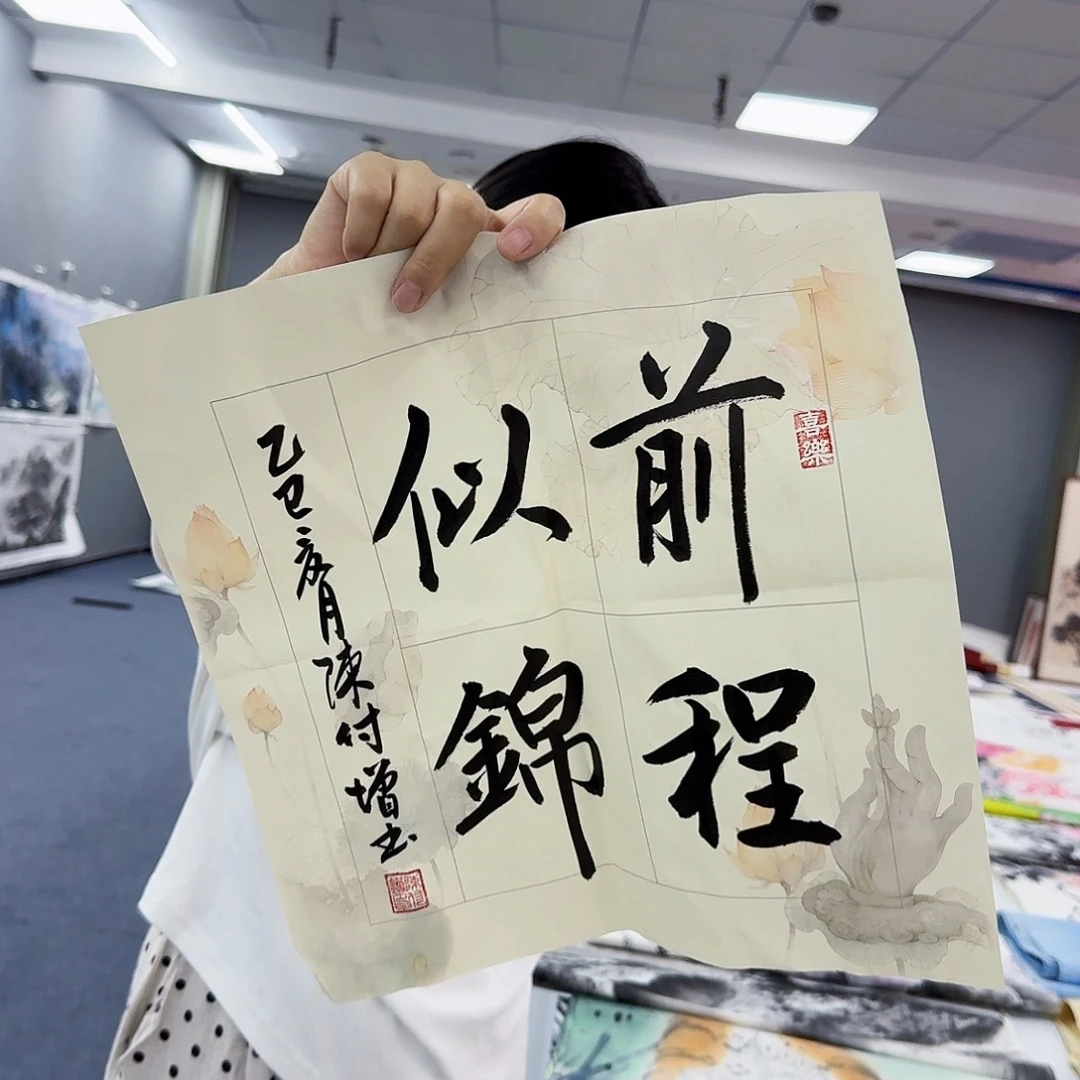 喜樂
前程
似錦
乙巳夏月陳付增书